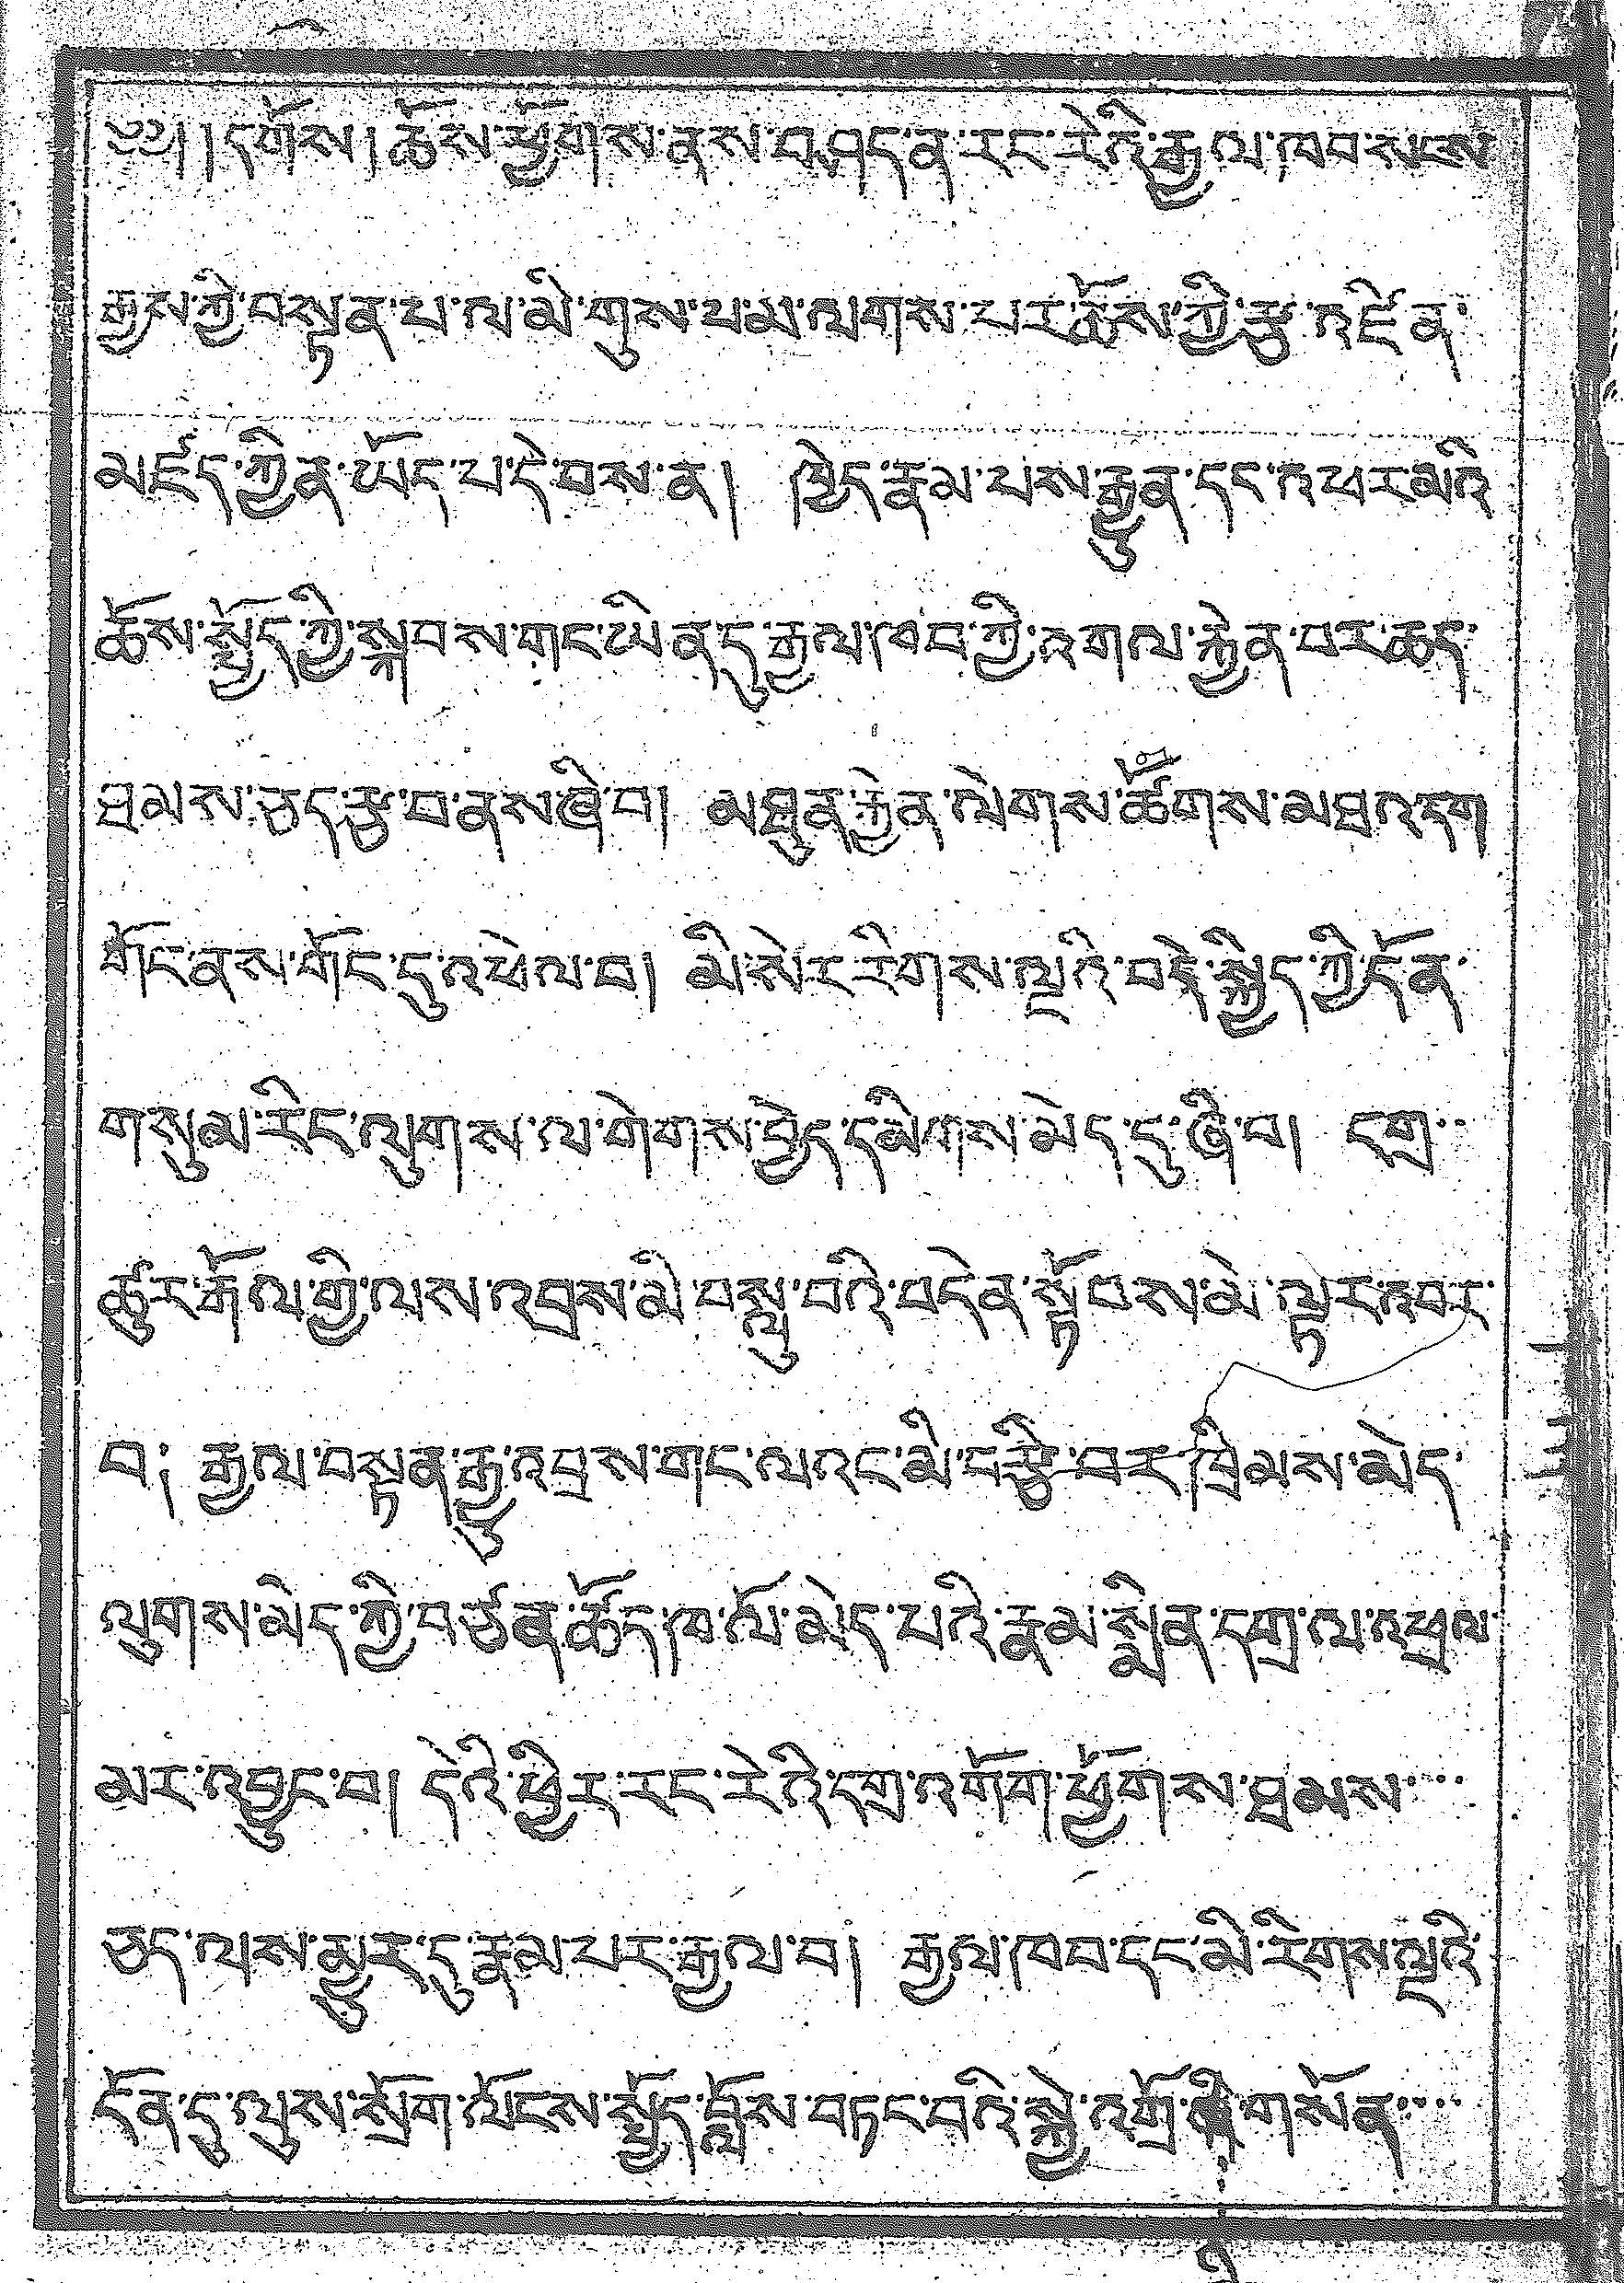 ༄༅། །དགོས། ཆོས་ཕྱོགས་ནས་བཤད་ན་རང་རེའི་རྒྱལ་ཁབ་སངས་
རྒྱས་ཀྱི་བསྟན་པ་ལ་མི་གུས་པ་མ་ལགས་པར་ཆོས་ཀྱི་རྩ་འཛིན་
མཛད་ཀྱིན་ཡོད་པ་དེ་བས་ན། ཁྱེད་རྣམ་པས་རྒྱུན་དང་འཕར་མའི་
ཆོས་སྤྱོད་ཀྱི་སྐབས་གང་ཡིན་དུ་རྒྱལ་ཁབ་ཀྱི་འགལ་རྐྱེན་བར་ཆད་
ཐམས་ཅད་རྩ་བ་ནས་ཞི་བ། མཐུན་རྐྱེན་ལེགས་ཚོགས་མཐའ་དག་
གོང་ནས་གོང་དུ་འཕེལ་བ། མི་སེར་རིགས་ལྔའི་བདེ་སྐྱིད་ཀྱི་དོན་
གསུམ་རིང་ལུགས་ལ་གེགས་བྱེད་དམིགས་མེད་དུ་ཞི་བ། དགྲ་
ཚུར་རྒོལ་གྱི་ལས་འབྲས་མི་བསླུ་བའི་བདེན་སྟོབས་མེ་ལྟར་འབར་
བ། རྒྱལ་བསྟན་རྒྱུ་འབྲས་གང་ལའང་མི་བརྩི་བར་ཁྲིམས་མེད་
ལུགས་མེད་ཀྱི་བཙན་ཚོད་ཁ་ལོ་མེད་པའི་རྣམ་སྨིན་དགྲ་ལ་འཕྲལ་
མར་འབྱུང་བ། དེའི་ཕྱིར་རང་རེའི་དགྲ་འགོག་ཕྱོགས་ཐམས་
ཅད་ལས་མྱུར་དུ་རྣམ་པར་རྒྱལ་བ། རྒྱལ་ཁབ་དང་མི་རིགས་ལྔའི་
དོན་དུ་ལུས་སྲོག་ལོངས་སྤྱོད་བློས་བཏང་བའི་སྐྱེ་འགྲོ་ཤི་གསོན་